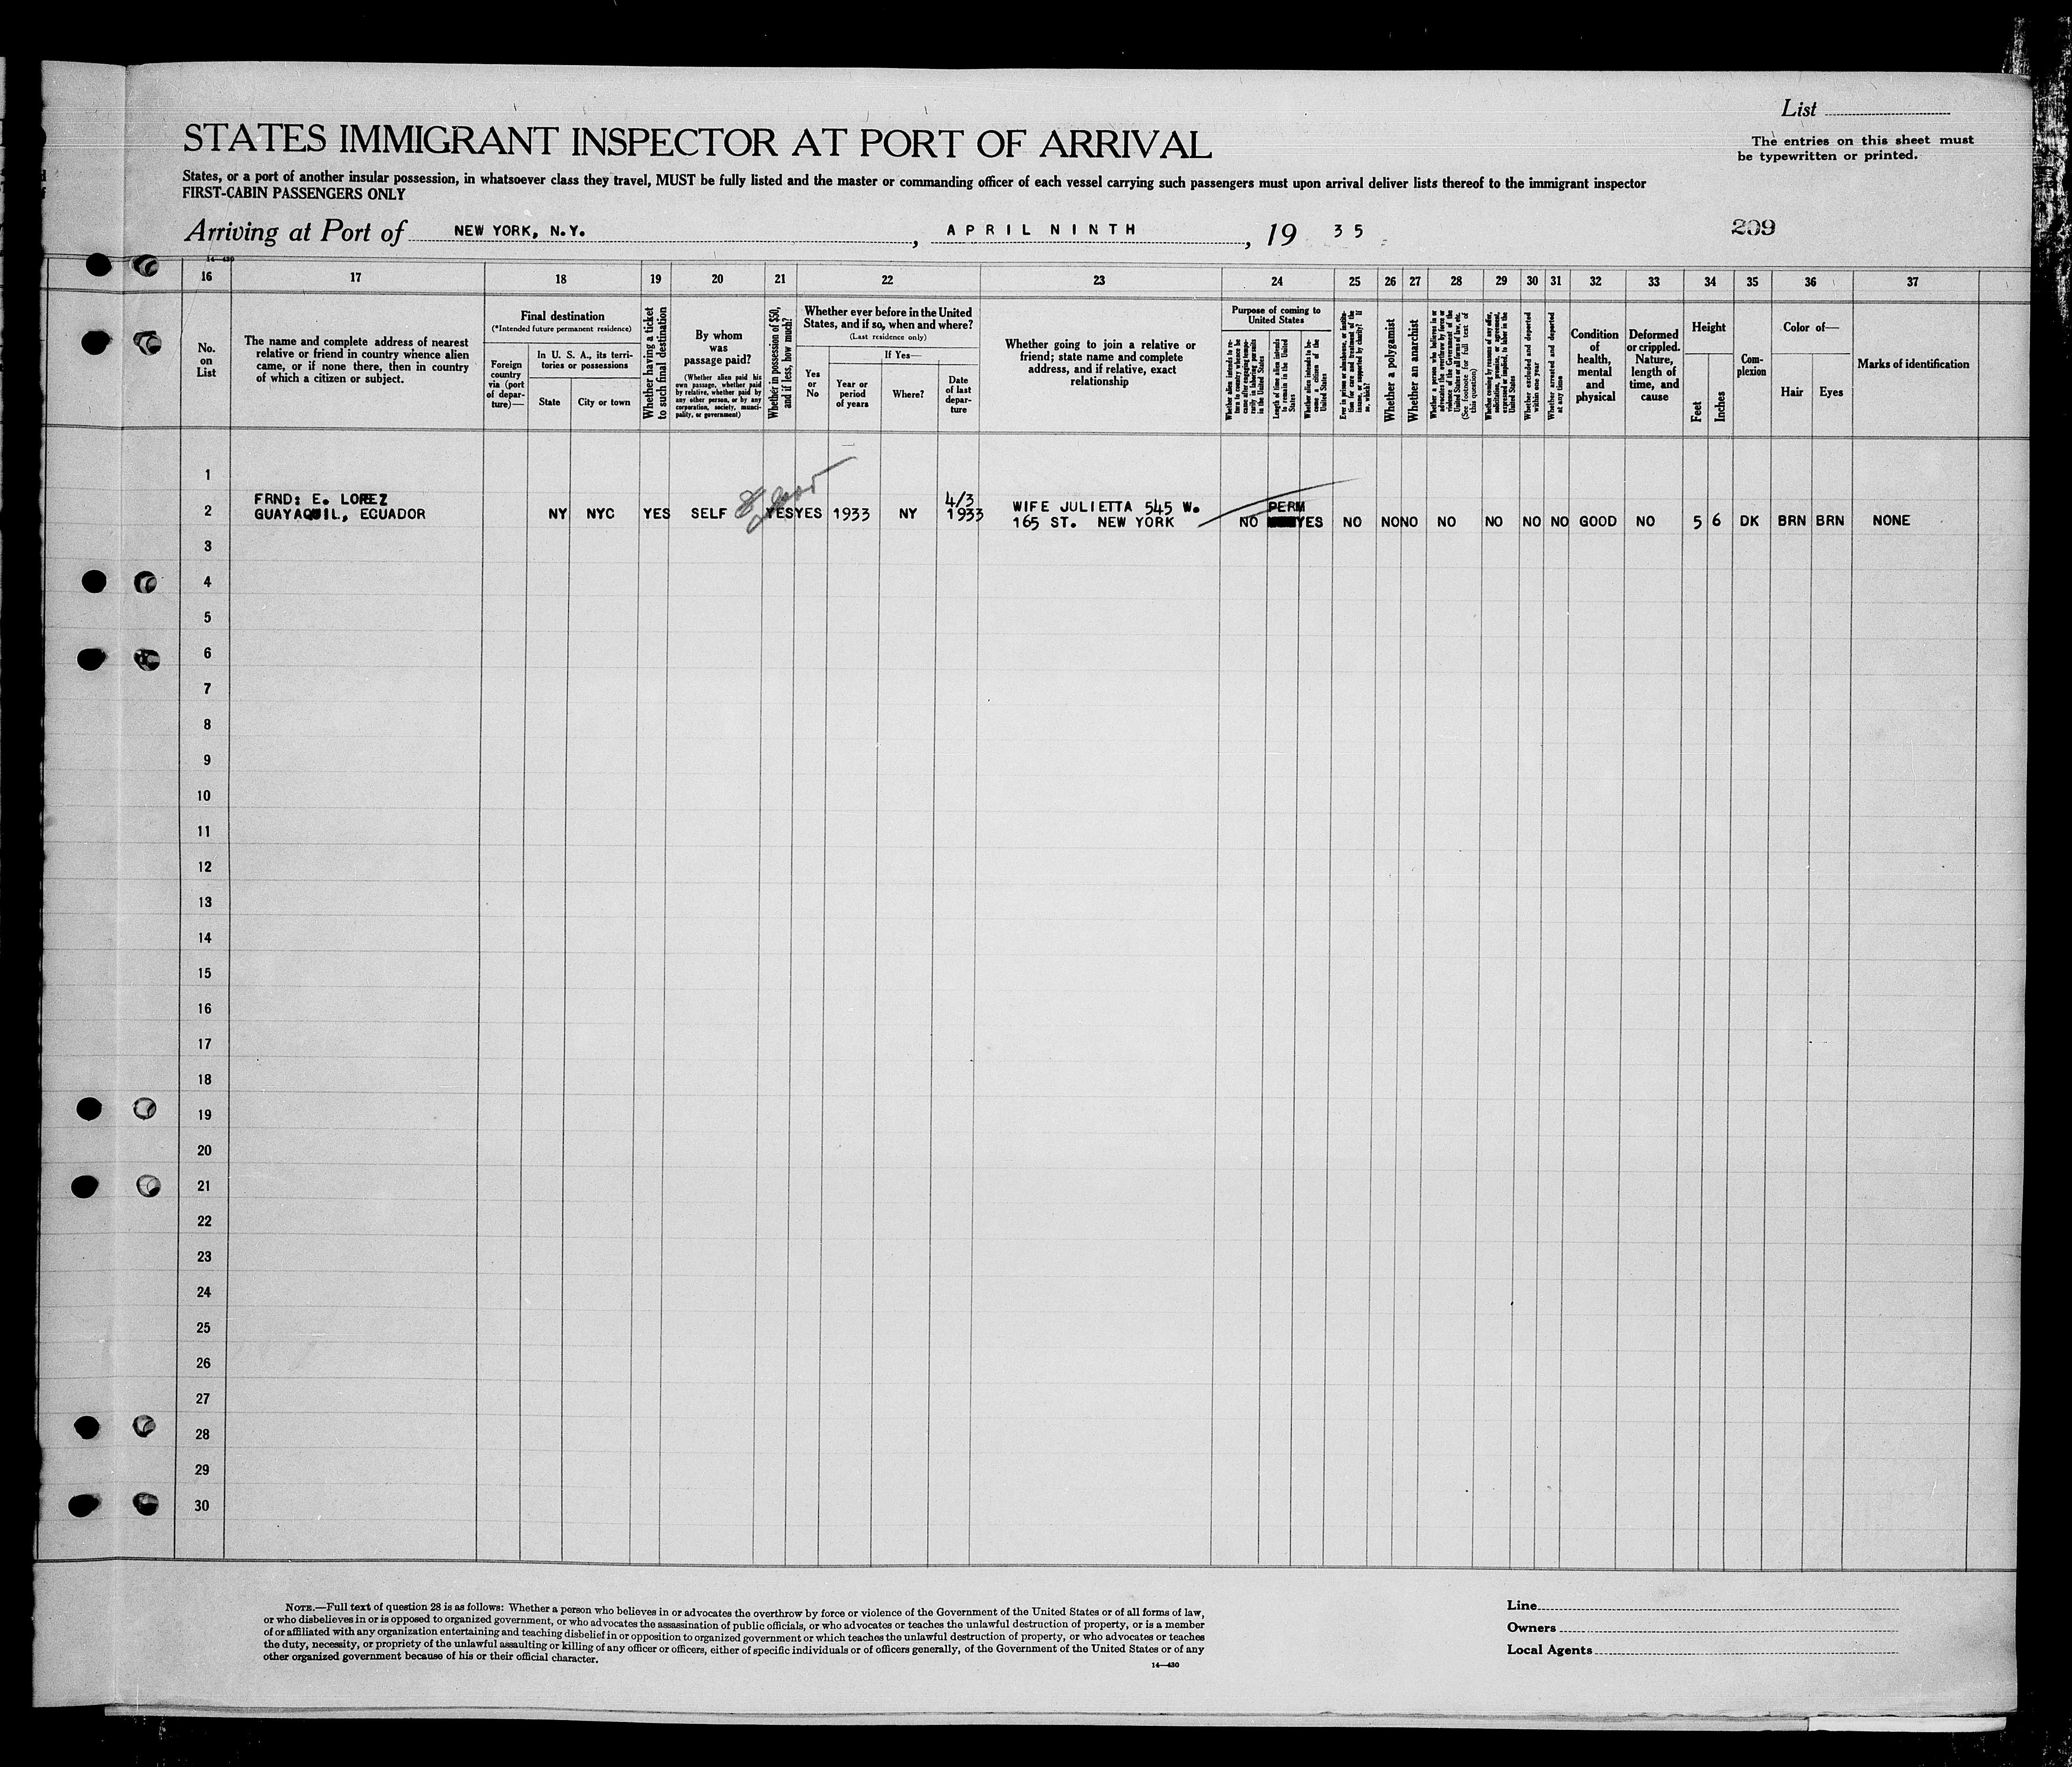 List
STATES IMMIGRANT INSPECTOR AT PORT OF ARRIVAL
The entries on this sheet must
be typewritten or printed.
States, or a port of another insular possession, in whatsoever class they travel, MUST be fully listed and the master or commanding officer of each vessel carrying such passengers must upon arrival deliver lists thereof to the immigrant inspector
FIRST-CABIN PASSENGERS ONLY
Arriving at Port of NEW YORK, N.Y. , APRIL NINTH , 19 35
209
14—430
16 17 18 19 20 21 22 23 24 25 26 27 28 29 30 31 32 33 34 35 36 37
No.
on
List
The name and complete address of nearest
relative or friend in country whence alien
came, or if none there, then in country
of which a citizen or subject.
Final destination
(*Intended future permanent residence)
Foreign
country
via (port
of depar-
ture)—
In U. S. A., its terri-
tories or possessions
State
City or town
Whether having a ticket
to such final destination
By whom
was
passage paid?
(Whether alien paid his
own passage, whether paid
by relative, whether paid by
any other person, or by any
corporation, society, munici-
pality, or government)
Whether in possession of $50,
and if less, how much?
Whether ever before in the United
States, and if so, when and where?
(Last residence only)
Yes
or
No
If Yes—
Year or
period
of years
Where?
Date
of last
depar-
ture
Whether going to join a relative or
friend; state name and complete
address, and if relative, exact
relationship
Purpose of coming to
United States
Whether alien intends to re-
turn to country whence he
came after engaging tempo-
rarily in laboring pursuits
in the United States
Length of time alien intends
to remain in the United
States
Whether alien intends to be-
come a citizen of the
United States
Ever in prison or almshouse, or institu-
tion for care and treatment of the
insane, or supported by charity? If
so, which?
Whether a polygamist
Whether an anarchist
Whether a person who believes in or
advocates the overthrow by force or
violence of the Government of the
United States or all forms of law, etc.
(See footnote for full text of
this question)
Whether coming by reasons of any offer,
solicitation, promise, or agreement,
expressed or implied, to labor in the
United States
Whether excluded and deported
within one year
Whether arrested and deported
at any time
Condition
of
health,
mental
and
physical
Deformed
or crippled.
Nature,
length of
time, and
cause
Height
Feet
Inches
Com-
plexion
Color of—
Hair
Eyes
Marks of identification
1
FRND: E. LOPEZ 4/3 WIFE JULIETTA 545 W. PERM
2 GUAYAQUIL, ECUADOR NY NYC YES SELF YES YES 1933 NY 1933 165 ST. NEW YORK NO YES NO NO NO NO NO NO NO GOOD NO 5 6 DK BRN BRN NONE
3
4
5
6
7
8
9
10
11
12
13
14
15
16
17
18
19
20
21
22
23
24
25
26
27
28
29
30
NOTE.—Full text of question 28 is as follows: Whether a person who believes in or advocates the overthrow by force or violence of the Government of the United States or of all forms of law,
or who disbelieves in or is opposed to organized government, or who advocates the assassination of public officials, or who advocates or teaches the unlawful destruction of property, or is a member
of or affiliated with any organization entertaining and teaching disbelief in or opposition to organized government or which teaches the unlawful destruction of property, or who advocates or teaches
the duty, necessity, or propriety of the unlawful assaulting or killing of any officer or officers, either of specific individuals or of officers generally, of the Government of the United States or of any
other organized government because of his or their official character.
14—430
Line
Owners
Local Agents